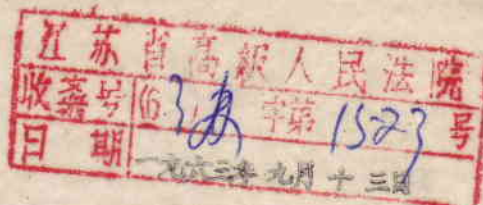 江苏省高级人民法院
收案号 (63) 字第 1523 号
日期 一九六三年九月十三日